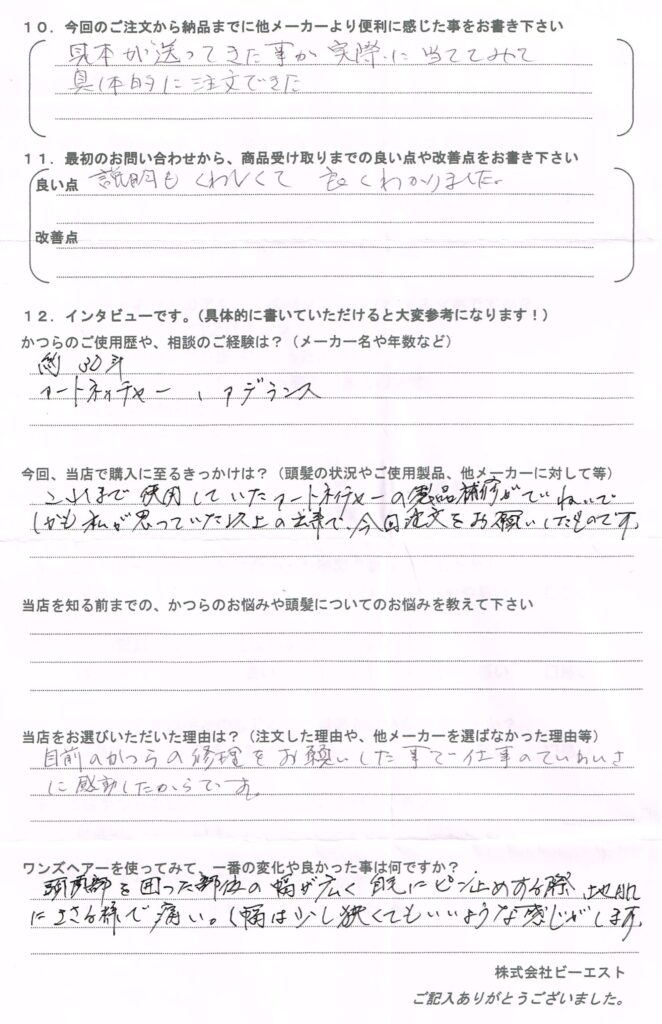 10．今回のご注文から納品までに他メーカーより便利に感じた事をお書き下さい
見本が送ってきた事が実際に当ててみて
具体的に注文できた
11．最初のお問い合わせから、商品受け取りまでの良い点や改善点をお書き下さい
良い点 説明もくわしくて 良くわかりました。
改善点
12．インタビューです。（具体的に書いていただけると大変参考になります！）
かつらのご使用歴や、相談のご経験は？（メーカー名や年数など）
約30年
アートネイチャー、アデランス
今回、当店で購入に至るきっかけは？（頭髪の状況やご使用製品、他メーカーに対して等）
これまで使用していたアートネイチャーの製品補修がていねいで
しかも私が思っていた以上の出来で、今回注文をお願いしたものです。
当店を知る前までの、かつらのお悩みや頭髪についてのお悩みを教えて下さい
当店をお選びいただいた理由は？（注文した理由や、他メーカーを選ばなかった理由等）
自前のかつらの修理をお願いした事で仕事のていねいさ
に感動したからです。
ワンズヘアーを使ってみて、一番の変化や良かった事は何ですか？
部を囲った部位の幅が広く 既にピン止めする際、地肌
にささる様で痛い。（幅は少し狭くてもいいような感じがします。
株式会社ビーエスト
ご記入ありがとうございました。